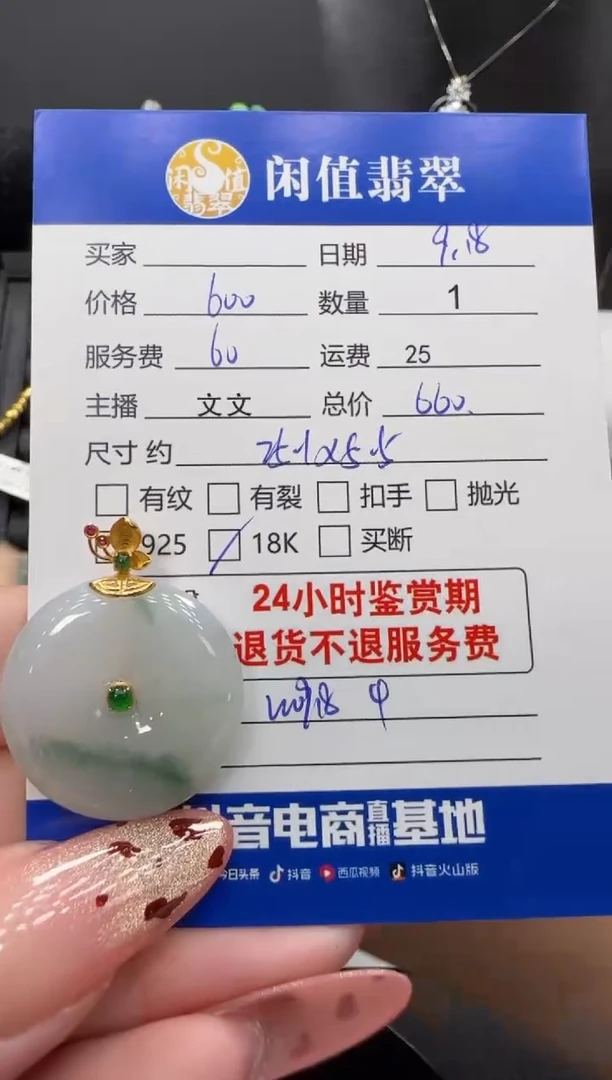 闲值翡翠 闲值翡翠
买家 日期 9.18
价格 600 数量 1
服务费 60 运费 25
主播 文文 总价 660.
尺寸 约
有纹 有裂 扣手 抛光
925 18K 买断
24小时鉴赏期
退货不退服务费
音电商直播基地
今日头条 抖音 西瓜视频 抖音火山版